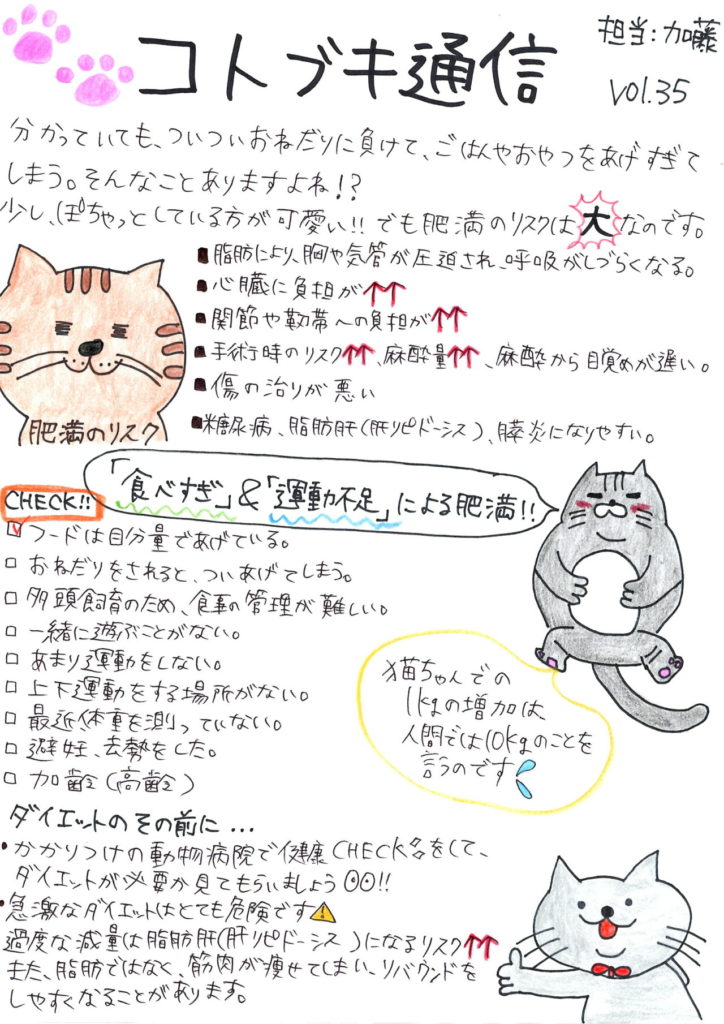 コトブキ通信
担当:加藤
vol.35
分かっていても、ついついおねだりに負けて、ごはんやおやつをあげすぎて
しまう。そんなことありますよね!?
少し、ぽちゃっとしている方が可愛い!!でも肥満のリスクは大なのです。
■脂肪により、胸や気管が圧迫され、呼吸がしづらくなる。
■心臓に負担が↑↑
■関節や靭帯への負担が↑↑
■手術時のリスク↑↑、麻酔量↑↑、麻酔から目覚めが遅い。
■傷の治りが悪い
■糖尿病、脂肪肝(肝リピドーシス)、膵炎になりやすい。
肥満のリスク
「食べすぎ」&「運動不足」による肥満!!
CHECK!!
☑フードは目分量であげている。
□おねだりをされると、ついあげてしまう。
□多頭飼育のため、食事の管理が難しい。
□一緒に遊ぶことがない。
□あまり運動をしない。
□上下運動をする場所がない。
□最近、体重を測っていない。
□避妊、去勢をした。
□加齢(高齢)
猫ちゃんでの
1kgの増加は、
人間では10kgのことを
言うのです
ダイエットのその前に...
・かかりつけの動物病院で健康CHECKをして、
ダイエットが必要か見てもらいましょう!!
・急激なダイエットはとても危険です⚠
過度な減量は脂肪肝(肝リピドーシス)になるリスク↑↑
また、脂肪ではなく、筋肉が痩せてしまい、リバウンドを
しやすくなることがあります。